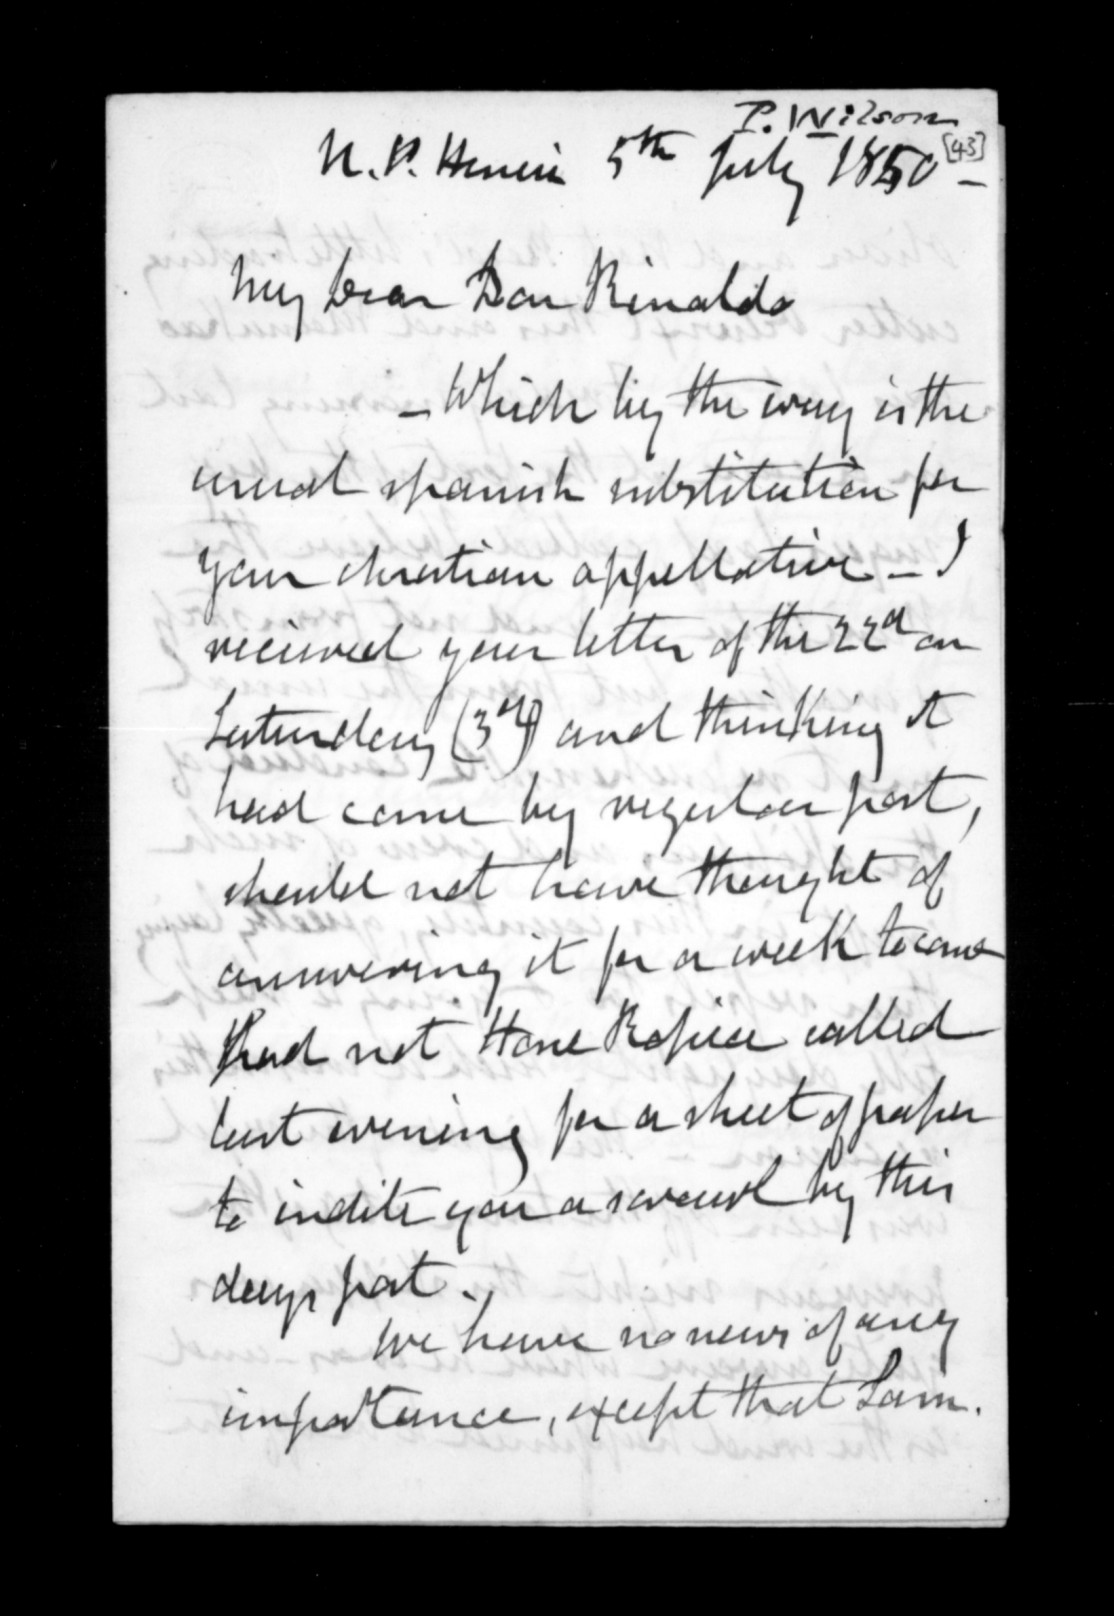 P. Wilson
[43]
N. P. Henui 5th July 1850 –
My Dear Don Rinaldo
– Which by the way is the
usual spanish substitution for
your christian appellative – I
recieved your letter of the 22d on
Saturday (3d) and thinking it
had come by regular post,
should not have thought of
answering it for a week to come
had not Hone Ropiea called
last evening for a sheet of paper
to indite you a scrawl by this
days post.
We have no news of any
importance, except that Sam.